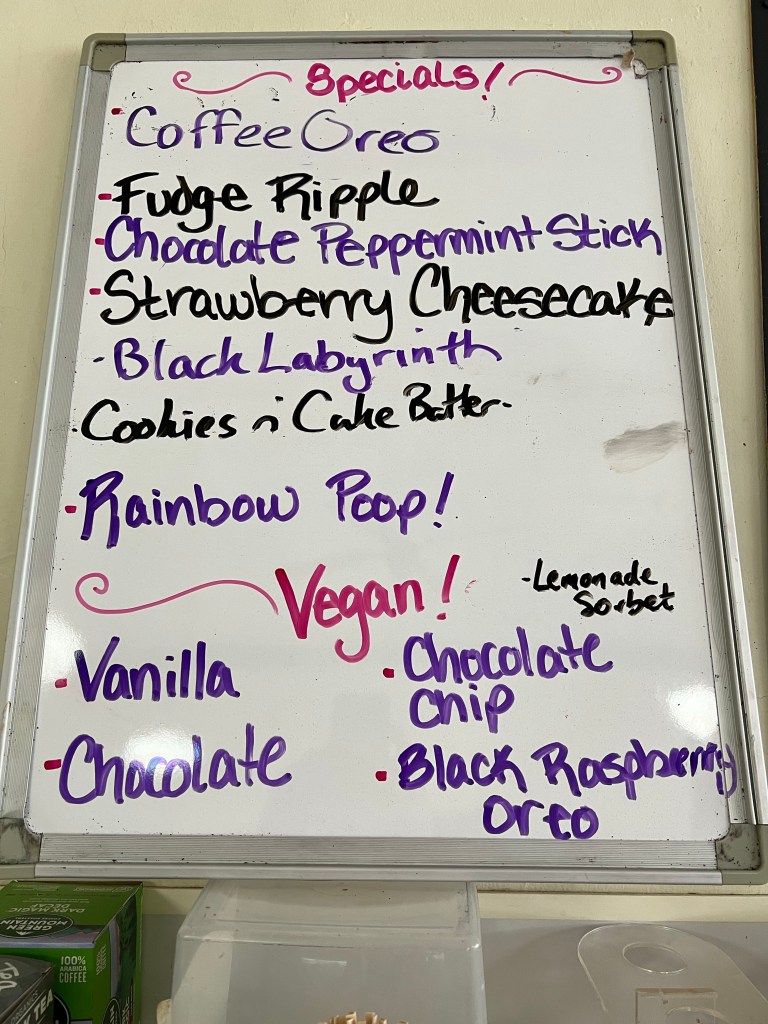 Specials!
- Coffee Oreo
- Fudge Ripple
- Chocolate Peppermint Stick
- Strawberry Cheesecake
- Black Labyrinth
- Cookies n' Cake Batter-
- Rainbow Poop!
Vegan!
- Lemonade
Sorbet
- Vanilla
- Chocolate
Chip
- Chocolate
- Black Raspberry
Oreo
DARK MAGIC
DECAF
GREEN
MOUNTAIN
100%
ARABICA
COFFEE